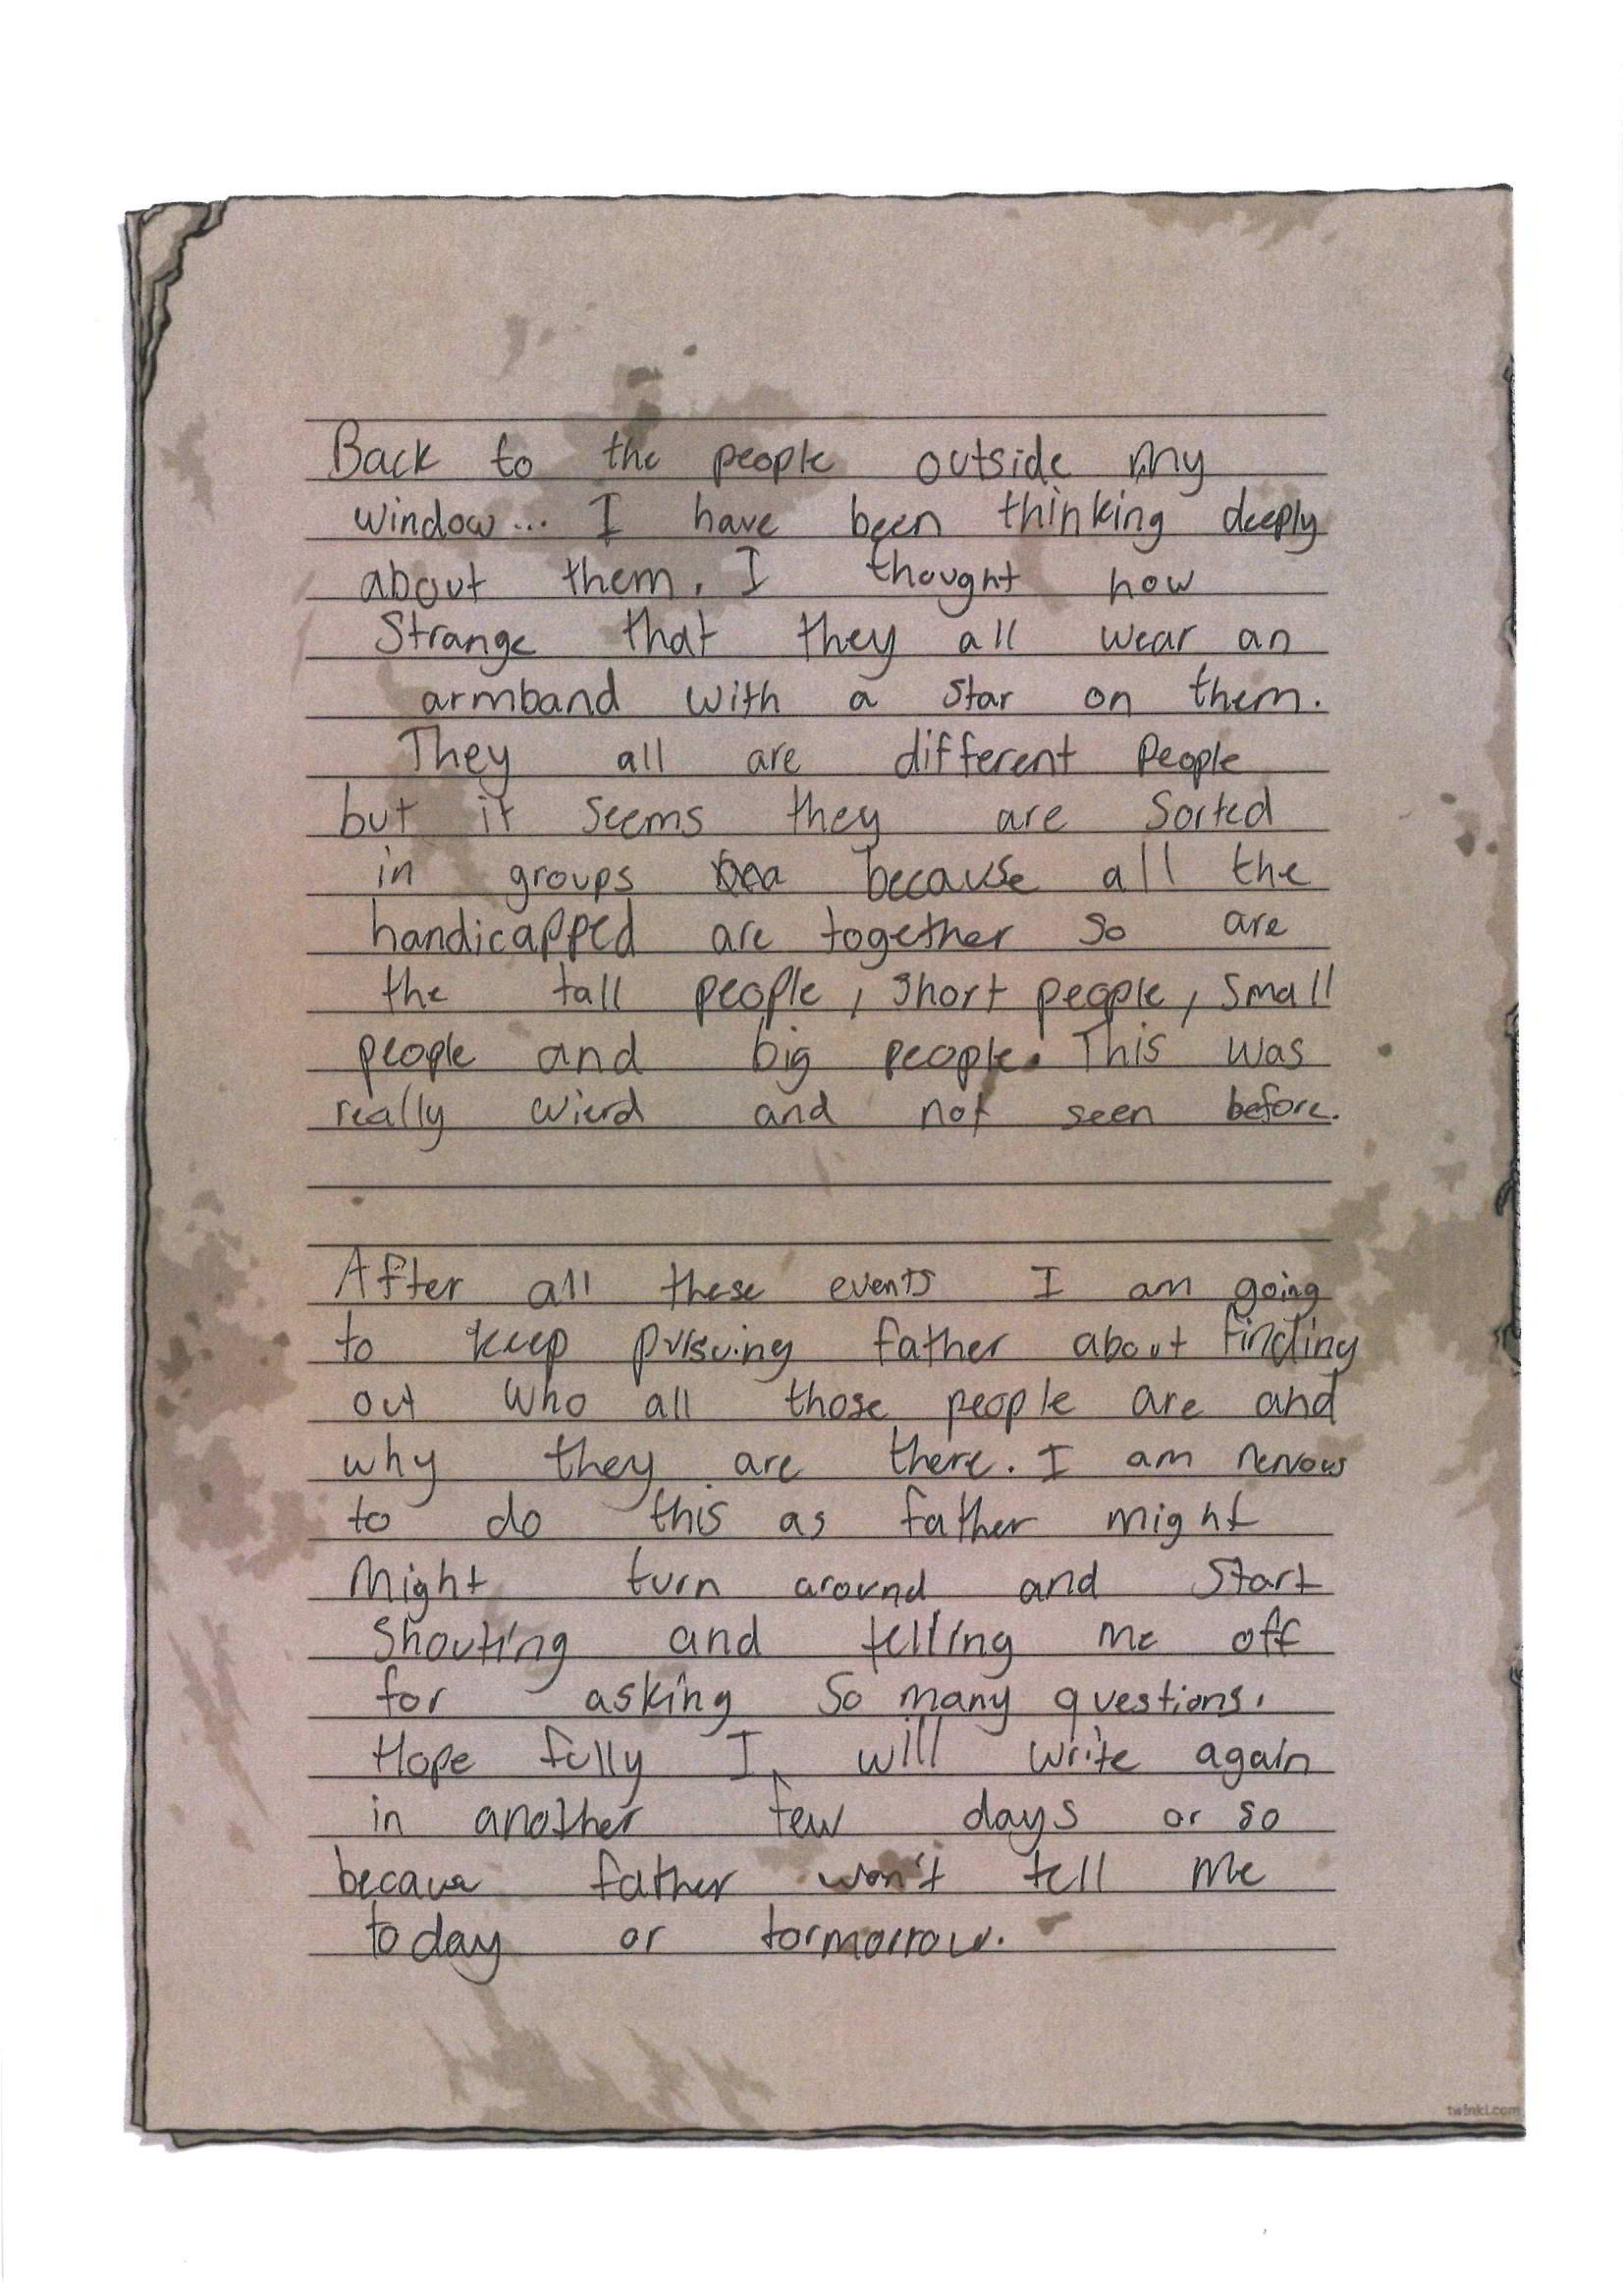 Back to the people outside my
window... I have been thinking deeply
about them. I thought how
Strange that they all wear an
armband with a star on them.
They all are different People
but it seems they are Sorted
in groups because all the
handicapped are together so are
the tall people, short people, small
people and big people. This was
really wierd and not seen before.
After all these events I am going
to keep father about finding
out who all those people are and
why they are there. I am nervous
to do this as father might
Might turn around and start
Shouting and telling me off
for asking so many questions.
Hope fully I will write again
in another few days or so
father won't tell me
today or tormorrow.
twinkl.com